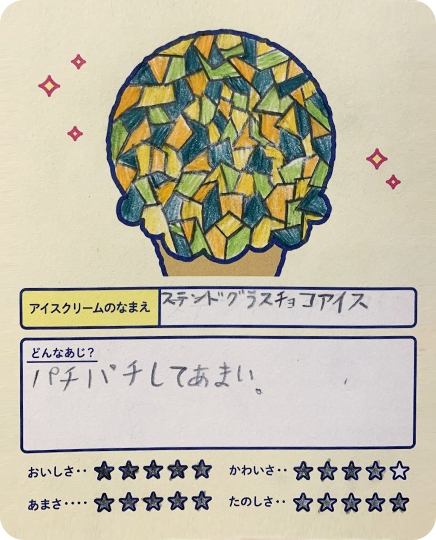 アイスクリームのなまえ ステンドグラスチョコアイス
どんなあじ?
パチパチしてあまい。
おいしさ‥ ★★★★★ かわいさ‥ ★★★★☆
あまさ‥‥ ★★★★★ たのしさ‥ ★★★★★